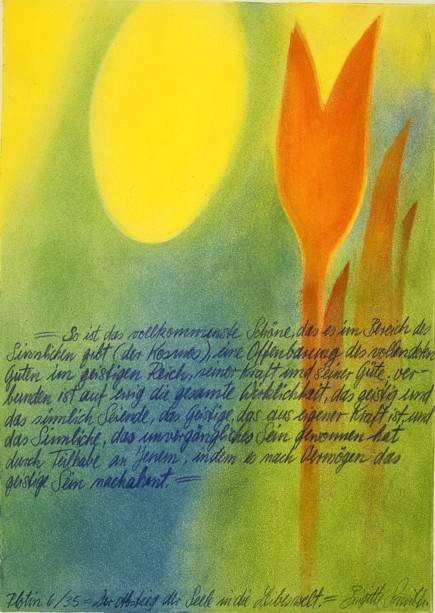 = So ist das vollkommenste Schöne, das es im Bereich des
Sinnlichen gibt (der Kosmos), eine Offenbarung des vollendeten
Guten im geistigen Reich, seiner Kraft und seiner Güte. ver-
bunden ist auf ewig die gesamte Wirklichkeit, das geistig und
das sinnlich Seiende, das Geistige, das aus eigener Kraft ist und
das Sinnliche, das unvergängliches Sein genommen hat
durch Teilhabe an Jenem, indem es nach Vermögen das
geistige Sein nachahmt. =
Plotin 6/35 = Der Abstieg der Seele in die Leibeswelt = Brigitte